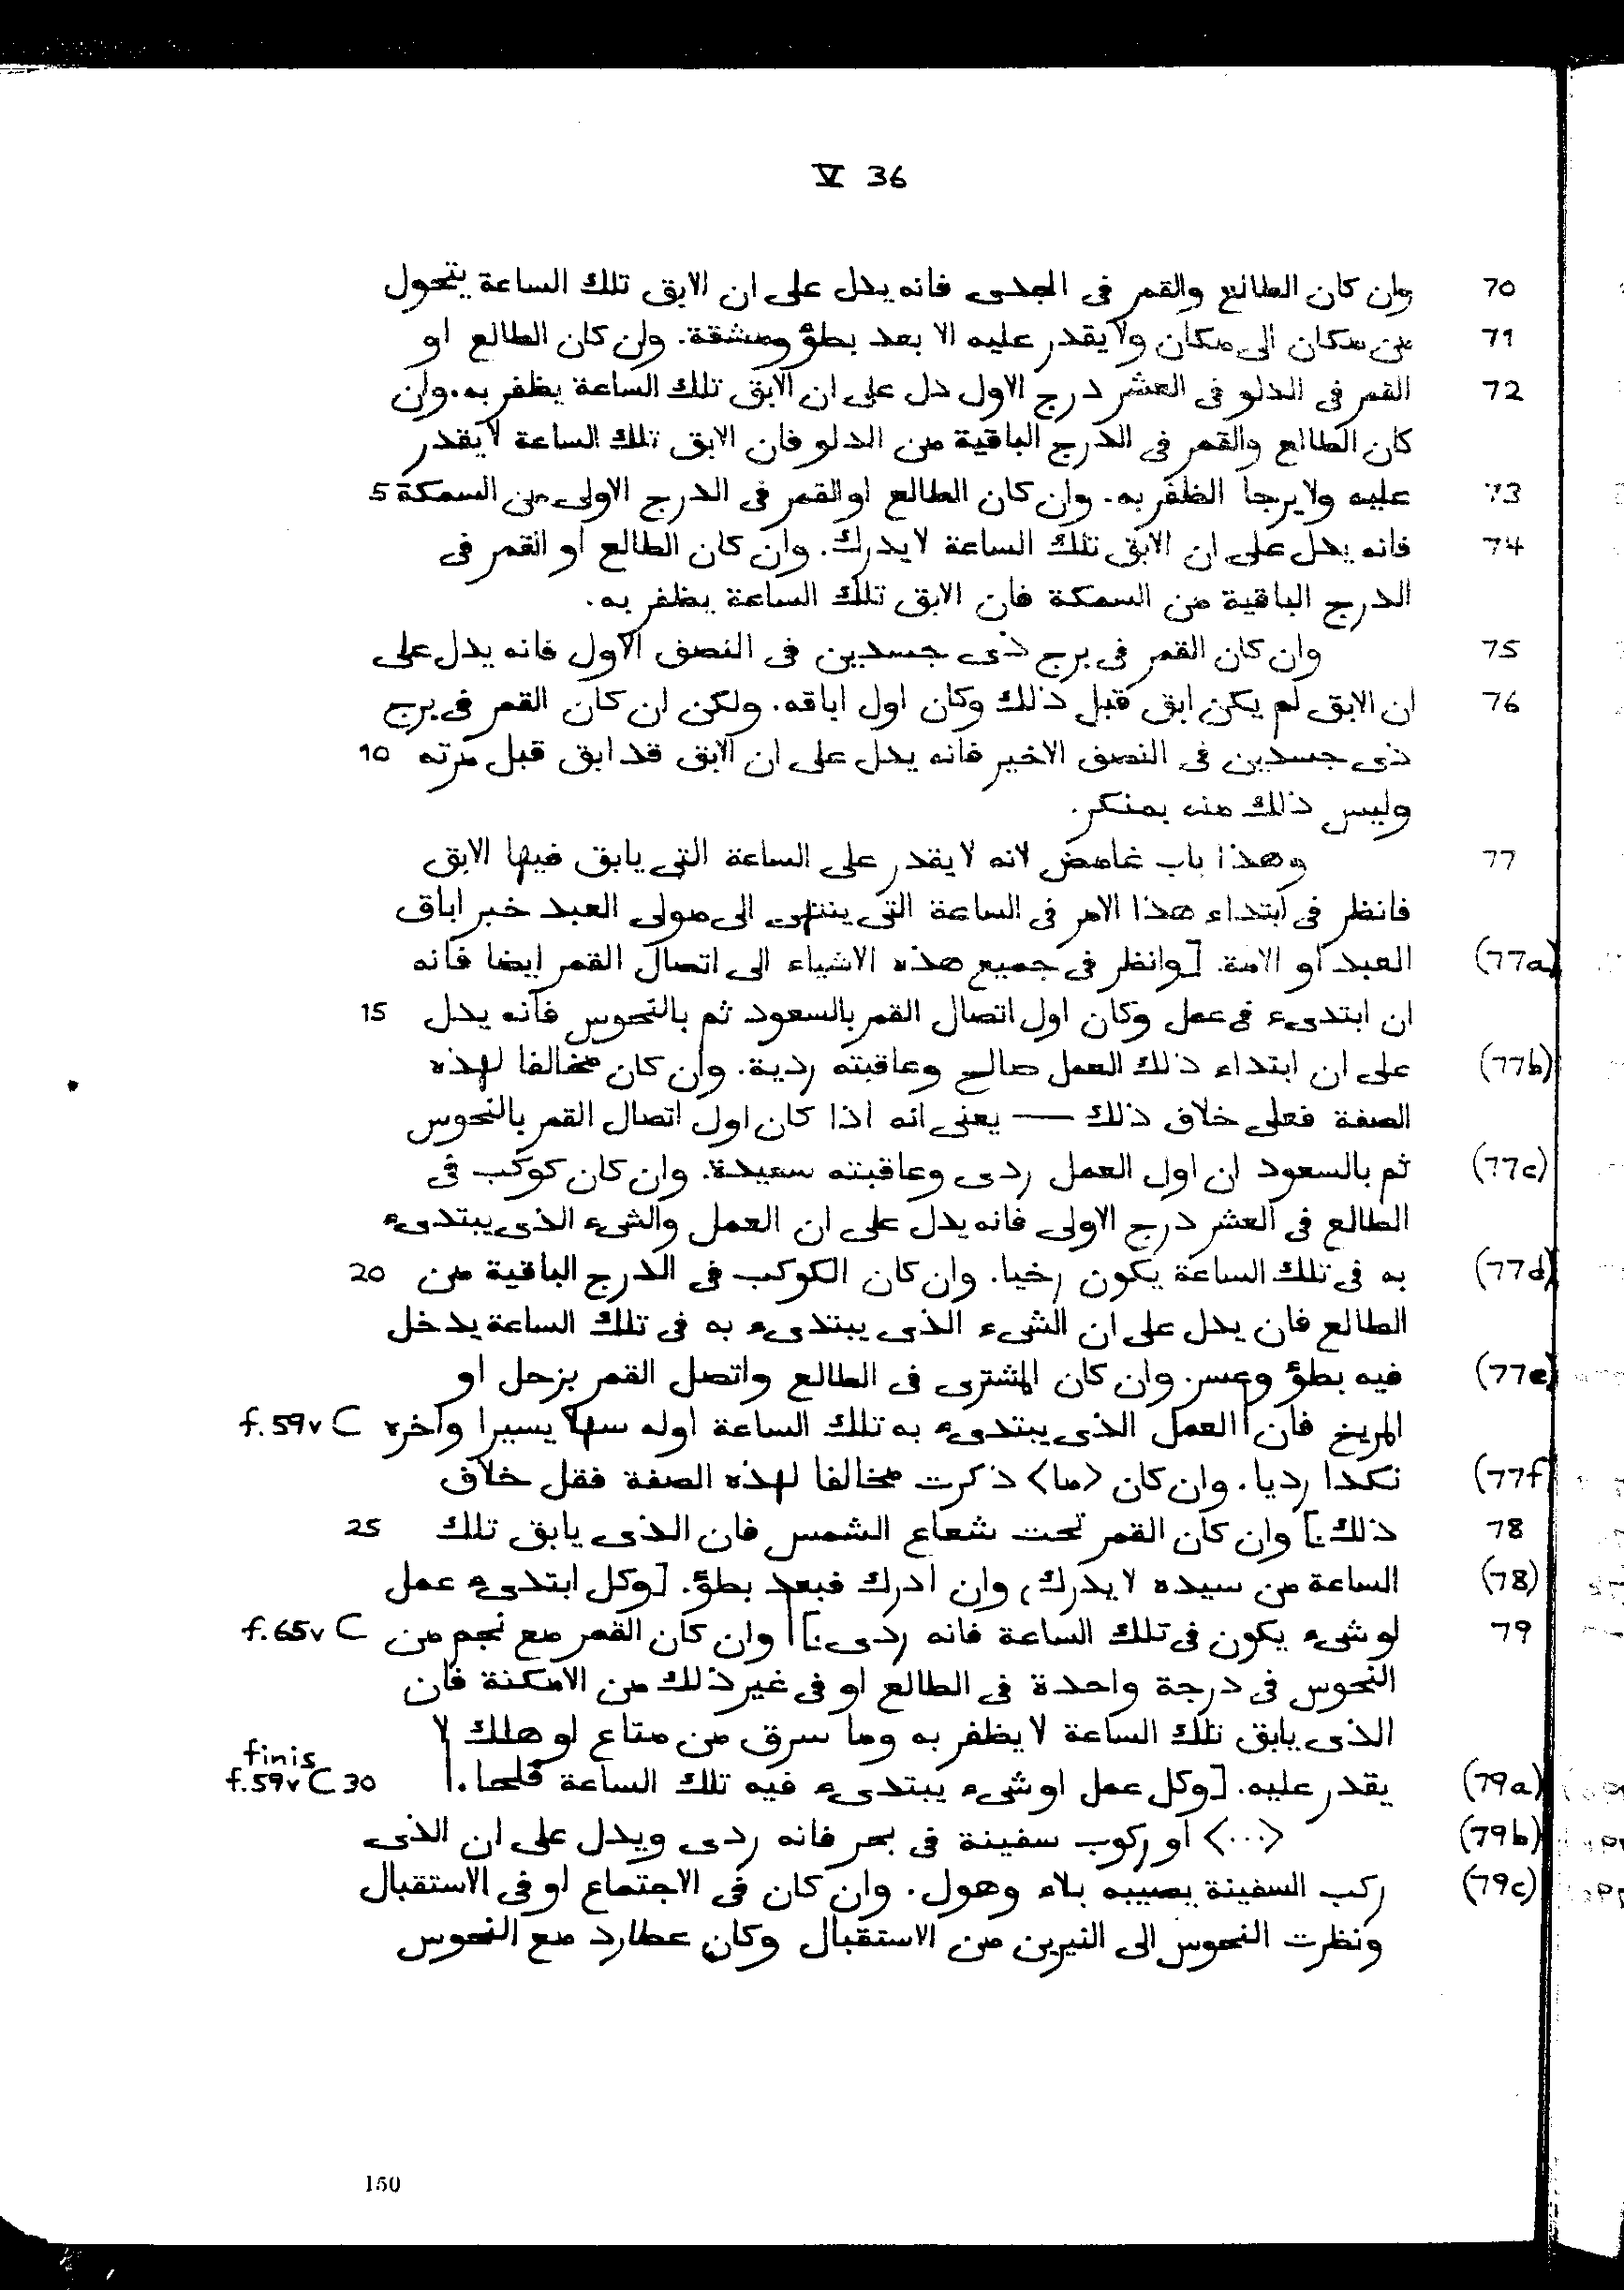 V 36
70 وان كان الطالع والقمر فى الجدى فانه يدل على ان الابق تلك الساعة يتحول
71 من مكان الى مكان ولا يقدر عليه الا بعد بطؤ ومشقة. وان كان الطالع او
72 القمر فى الدلو فى العشر درج الاول دل على ان الابق تلك الساعة يظفر به. وان
كان الطالع والقمر فى الدرج الباقية من الدلو فان الابق تلك الساعة لا يقدر
73 عليه ولا يرجا الظفر به. وان كان الطالع او القمر فى الدرج الاولى من السمكة 5
74 فانه يدل على ان الابق تلك الساعة لا يدرك. وان كان الطالع او القمر فى
الدرج الباقية من السمكة فان الابق تلك الساعة يظفر به.
75 وان كان القمر فى برج ذى جسدين فى النصف الاول فانه يدل على
76 ان الابق لم يكن ابق قبل ذلك وكان اول اباقه. ولكن ان كان القمر فى برج
ذى جسدين فى النصف الاخير فانه يدل على ان الابق قد ابق قبل مرته 10
وليس ذلك منه بمنكر.
77 وهذا باب غامض لانه لا يقدر على الساعة التى يابق فيها الابق
فانظر فى ابتداء هذا الامر فى الساعة التى ينتهى الى مولى العبد خبر اباق
(77a) العبد او الامة. [وانظر فى جميع هذه الاشياء الى اتصال القمر ايضا فانه
ان ابتدىء فى عمل وكان اول اتصال القمر بالسعود ثم بالنحوس فانه يدل 15
(77b) على ان ابتداء ذلك العمل صالح وعاقبته ردية. وان كان مخالفا لهذه
الصفة فعلى خلاف ذلك — يعنى انه اذا كان اول اتصال القمر بالنحوس
(77c) ثم بالسعود ان اول العمل ردى وعاقبته سعيدة. وان كان كوكب فى
الطالع فى العشر درج الاولى فانه يدل على ان العمل والشىء الذى يبتدىء
(77d) به فى تلك الساعة يكون رخيا. وان كان الكوكب فى الدرج الباقية من 20
الطالع فان يدل على ان الشىء الذى يبتدىء به فى تلك الساعة يدخل
(77e) فيه بطؤ وعسر. وان كان المشترى فى الطالع واتصل القمر بزحل او
المريخ فان | العمل الذى يبتدىء به تلك الساعة اوله سهلا يسيرا واخره f. 59v C
(77f) نكدا رديا. وان كان <ما> ذكرت مخالفا لهذه الصفة فقل خلاف
78 ذلك ∴] وان كان القمر تحت شعاع الشمس فان الذى يابق تلك 25
(78) الساعة من سيده لا يدرك، وان ادرك فبعد بطؤ. [وكل ابتدىء عمل
79 او شىء يكون فى تلك الساعة فانه ردى ∴] | وان كان القمر مع نجم من f. 65v C
النحوس فى درجة واحدة فى الطالع او فى غير ذلك من الامكنة فان
الذى يابق تلك الساعة لا يظفر به وما سرق من متاع او هلك لا
finis
(79a) يقدر عليه. [وكل عمل او شىء يبتدىء فيه تلك الساعة | f. 59v C 30
(79b) <...> او ركوب سفينة فى بحر فانه ردى ويدل على ان الذى
(79c) ركب السفينة يصيبه بلاء وهول. وان كان فى الاجتماع او فى الاستقبال
ونظرت النحوس الى النيرين من الاستقبال وكان عطارد مع النحوس
150